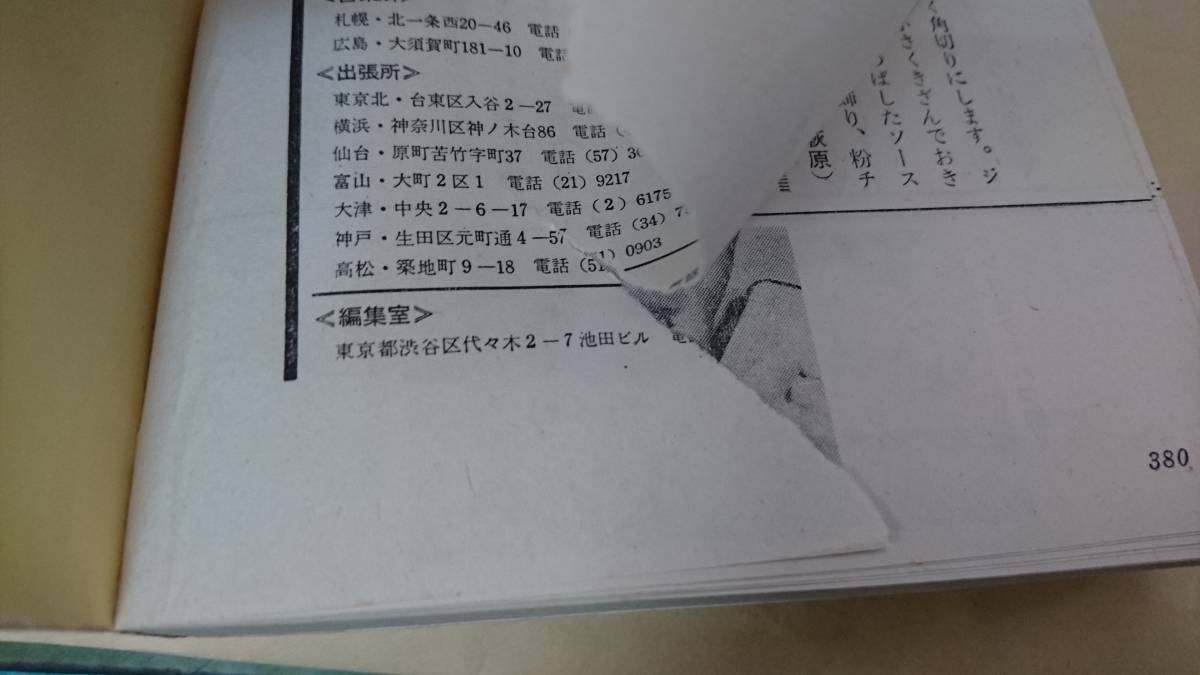 札幌・北一条西20−46 電話
広島・大須賀町181−10 電話
≪出張所≫
東京北・台東区入谷2−27 電話
横浜・神奈川区神ノ木台86 電話（
仙台・原町苦竹字町37 電話（57）3
富山・大町2区1 電話（21）9217
大津・中央2−6−17 電話（2）6175
神戸・生田区元町通4−57 電話（34）7
高松・築地町9−18 電話（51）0903
≪編集室≫
東京都渋谷区代々木2−7池田ビル 電
く角切りにします。ジ
さくきざんでおき
ばしたソース
飾り、粉チ
萩原）
380